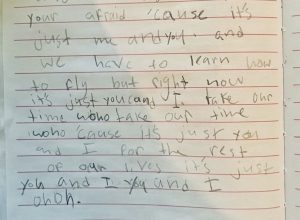 your afraid 'cause it's
just me and you. and
we have to learn how
to fly but right now
it's just you and I. take our
time woho take our time
woho 'cause it's just you
and I for the rest
of our lives it's just
you and I you and I
ohoh.